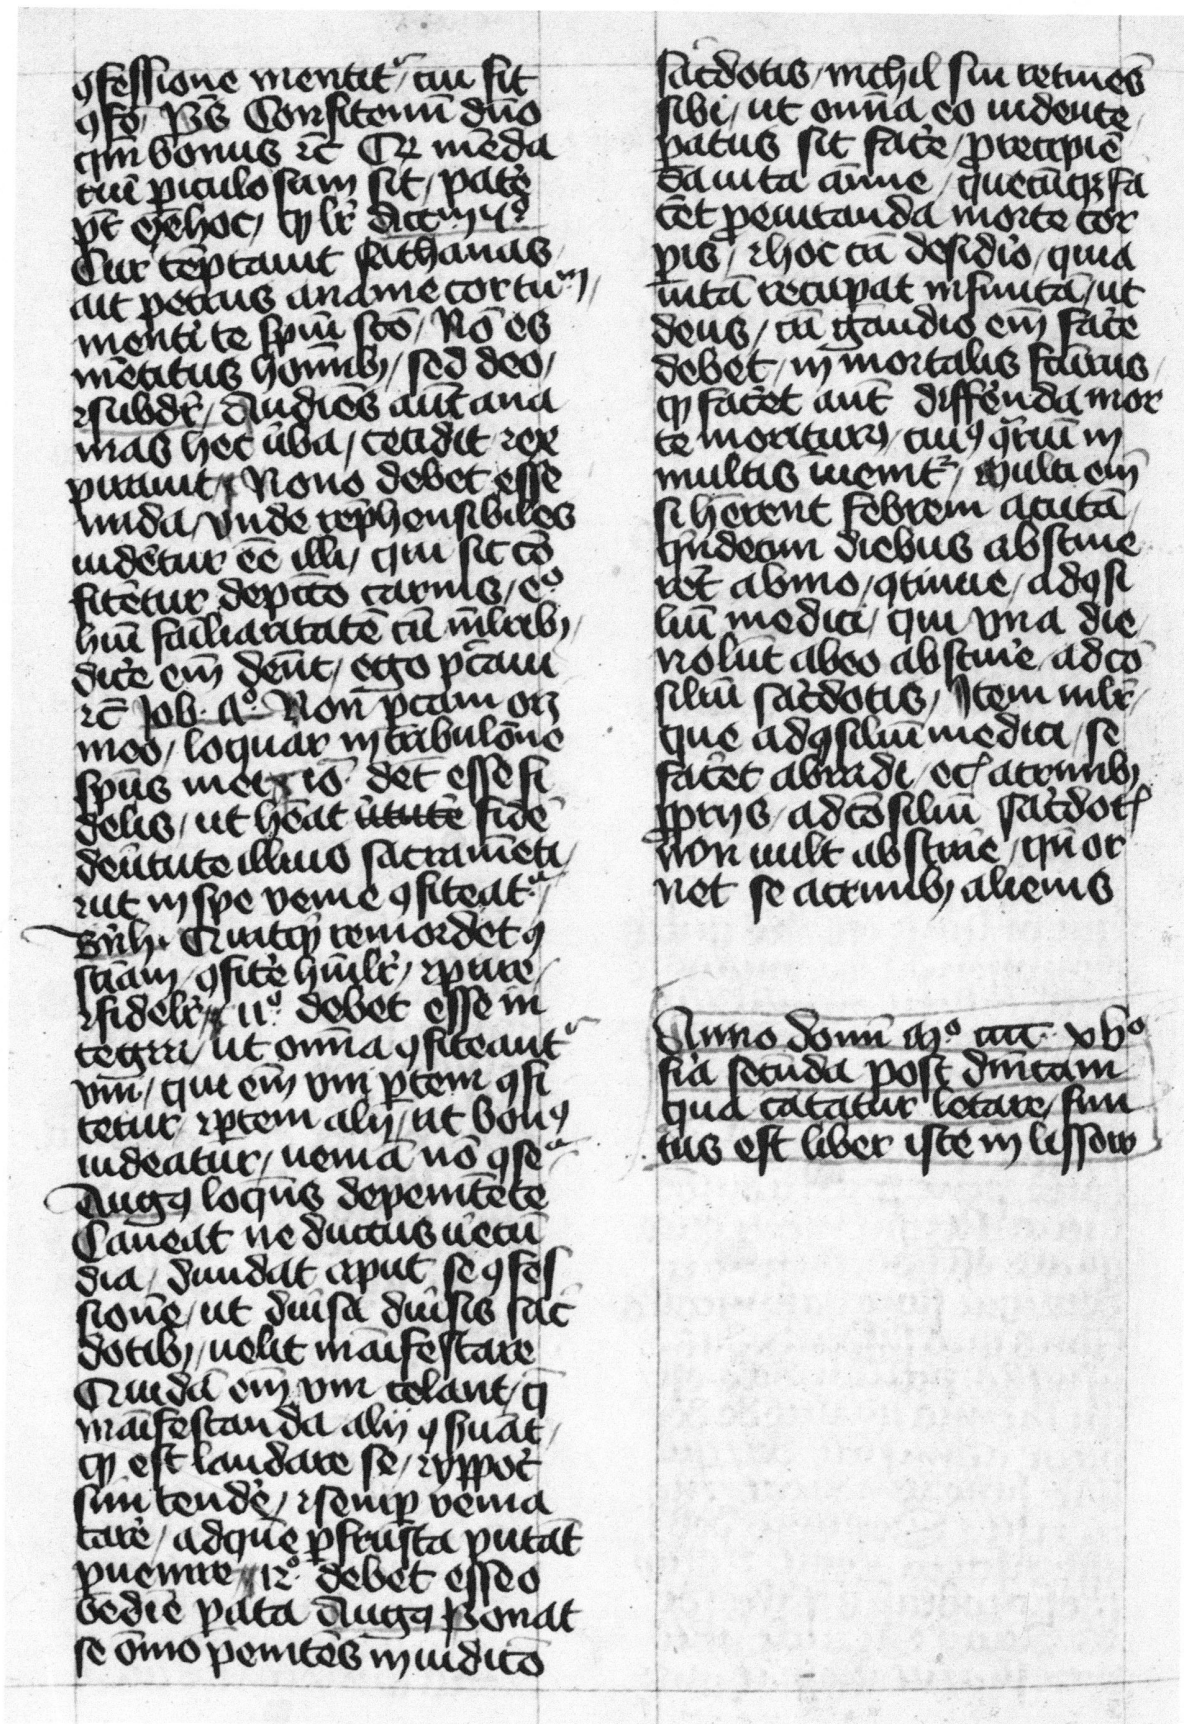 ꝯfessione mentit᷑ cū sit
ꝯfo / pͣs Confitemī dn̄o
qm̄ bonus ⁊c̄ Et mēda
tiū ꝑiculosum sit / patꝫ
Cur tēptauit sathanas
ait petrus anania cor tuū /
mentiri te spūi scō / Nō es
mētitus homībꝫ / sed deo /
⁊subdr̄ / Audiēs aūt ana
nias hec ūba / cecidit ⁊ex
pirauit / Nono debet esse
nuda / vnde rep̄hensibiles
uidētur eē illi / qui sic cō
fitētur de pctō carnis / eͦ
hūi fāiliaritatē cū mlr̄ibꝫ /
dicē em̄ dēnt / ego pcc̄aui
⁊c̄ Job · Non ꝑcam ori
meo / loquar in tribulōne
spūs mei ⁊ ·10· det̄ esse fi
delis / ut hēat ūtutē fidē
de ūtute illius sacramēti /
⁊ut in spe venie ꝯfiteat᷑ /
remordet ꝯ
sciam / ꝯfitē hūilr̄ / ⁊pure /
⁊fidelr̄ / 11ͦ debet esse in
tegra / ut omīa ꝯfiteant᷑
vni / qui em̄ vni ꝑtem ꝯfi
tetur / ⁊ꝑtem alij / ut bonꝯ
uideatur / ueniā nō ꝯse᷑
Augꝯ loquēs de penitēte
Caueat ne ductus ūecū
dia / diuidat aput se ꝯfes
sionē / ut diūsa diūsis sac̄
dotibꝫ / uelit māifestare
Quidā em̄ vni celant / q̄
māifestanda alij ꝯsuāt /
qꝫ est laudare se / ⁊yppoc̄
sim tendē / ⁊semꝑ venia
carē / ad quē ꝑ frusta putāt
ꝑuenire / 12ͦ debet esse o
bediē ꝑata Augꝯ Ponat
se ōmo penitēs in iudicō
sac̄dotis / nichil sui retinēs
sibi / ut omīa eo iubente
ꝑatus sit facē / ꝓ recipiē
da uita anīe / quecūqꝫ fa
cēt ꝓ euitanda morte cor
ꝑis / ⁊hoc cū desidio / quia
uitā recuꝑat infinitā / ut
deus / cū gaudio em̄ facē
debet / īmortalis futurus /
qꝫ facēt aūt diffēnda mor
te moriturꝯ / cuiꝯ ꝯ̄riū in
multis īuenit᷑ / Multi em̄
si hērent febrem acutā /
quīdecim diebus abstine
rēt a bino / ꝯtinue / ad ꝯsi
liū medici / qui vna die /
nolūt ab eo abstinē / ad cō
siliū sac̄dotis / Item mlr̄ /
que ad ꝯsiliū medici / se
facēt abradi / a crinibꝫ
ꝓprijs / ad cōsiliū sac̄dotꝭ
non uult abstinē / qn̄ or
net se crinibꝫ alienis
Anno domī Mͦ cccc xvͦ
fīa secūda post dnīcam
qua cātatur letare / fini
tus est liber iste in lissow